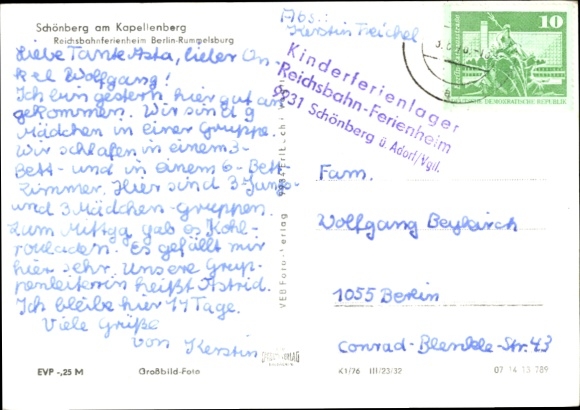 Schönberg am Kapellenberg
Reichsbahnferienheim Berlin-Rumgelsburg
Liebe Tante Asta, lieber On-
kel Wolfgang!
Ich bin gestern hier gut an
gekommen. Wir sind 9
Mädchen in einer Gruppe.
Wir schlafen in einem 3-
Bett- und in einem 6-Bett
Zimmer. Hier sind 3 Jung-
und 3 Mädchen-Gruppen.
Zum Mittag gab es Kohl-
rouladen. Es gefällt mir
hier sehr. Unsere Grup-
penleiterin heißt Astrid.
Ich bleibe hier 17 Tage.
Viele Grüße
von Kerstin
EVP -,25 M
Großbild-Foto
VEB Foto-Verlag
Abs.:
Kerstin Teichel
10
DEMOKRATISCHE REPUBLIK
Kinderferienlager
Reichsbahn-Ferienheim
9931 Schönberg ü. Adorf/Vgtl.
Fam.
Wolfgang Beykirch
1055 Berlin
Conrad-Blenkle-Str. 43
K1/76 III/23/32
07 14 13 789